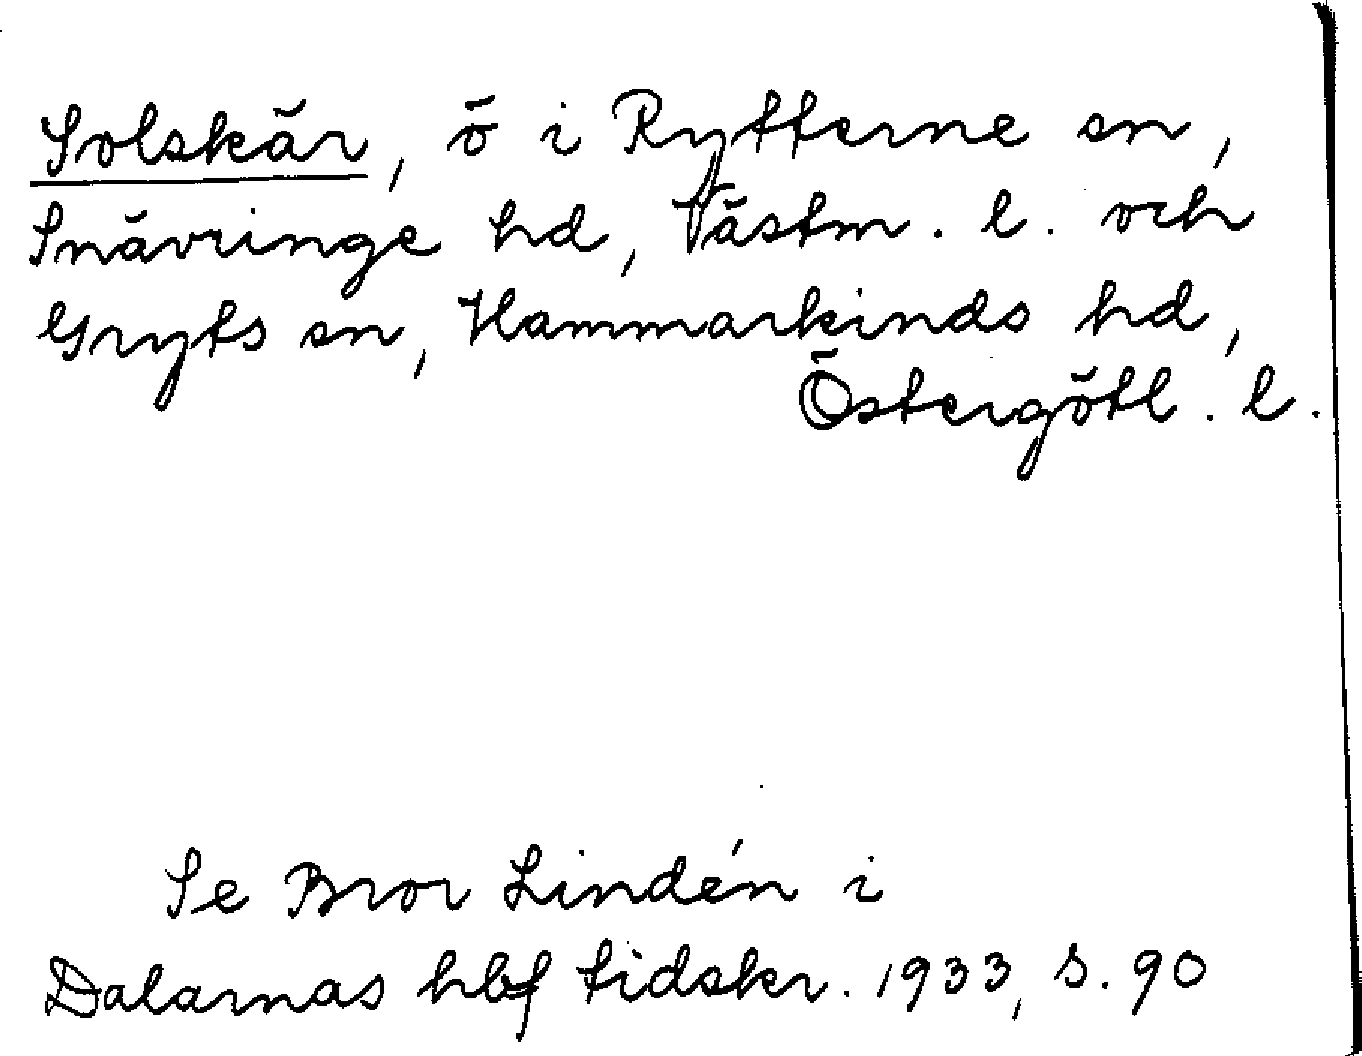 Solskär, ö i Rytterne sn,
Snävringe hd, Västm. l. och
Gryts sn, Hammarkinds hd,
Östergötl. l.
Se Bror Lindén i
Dalarnas hbf tidskr. 1933, s. 90